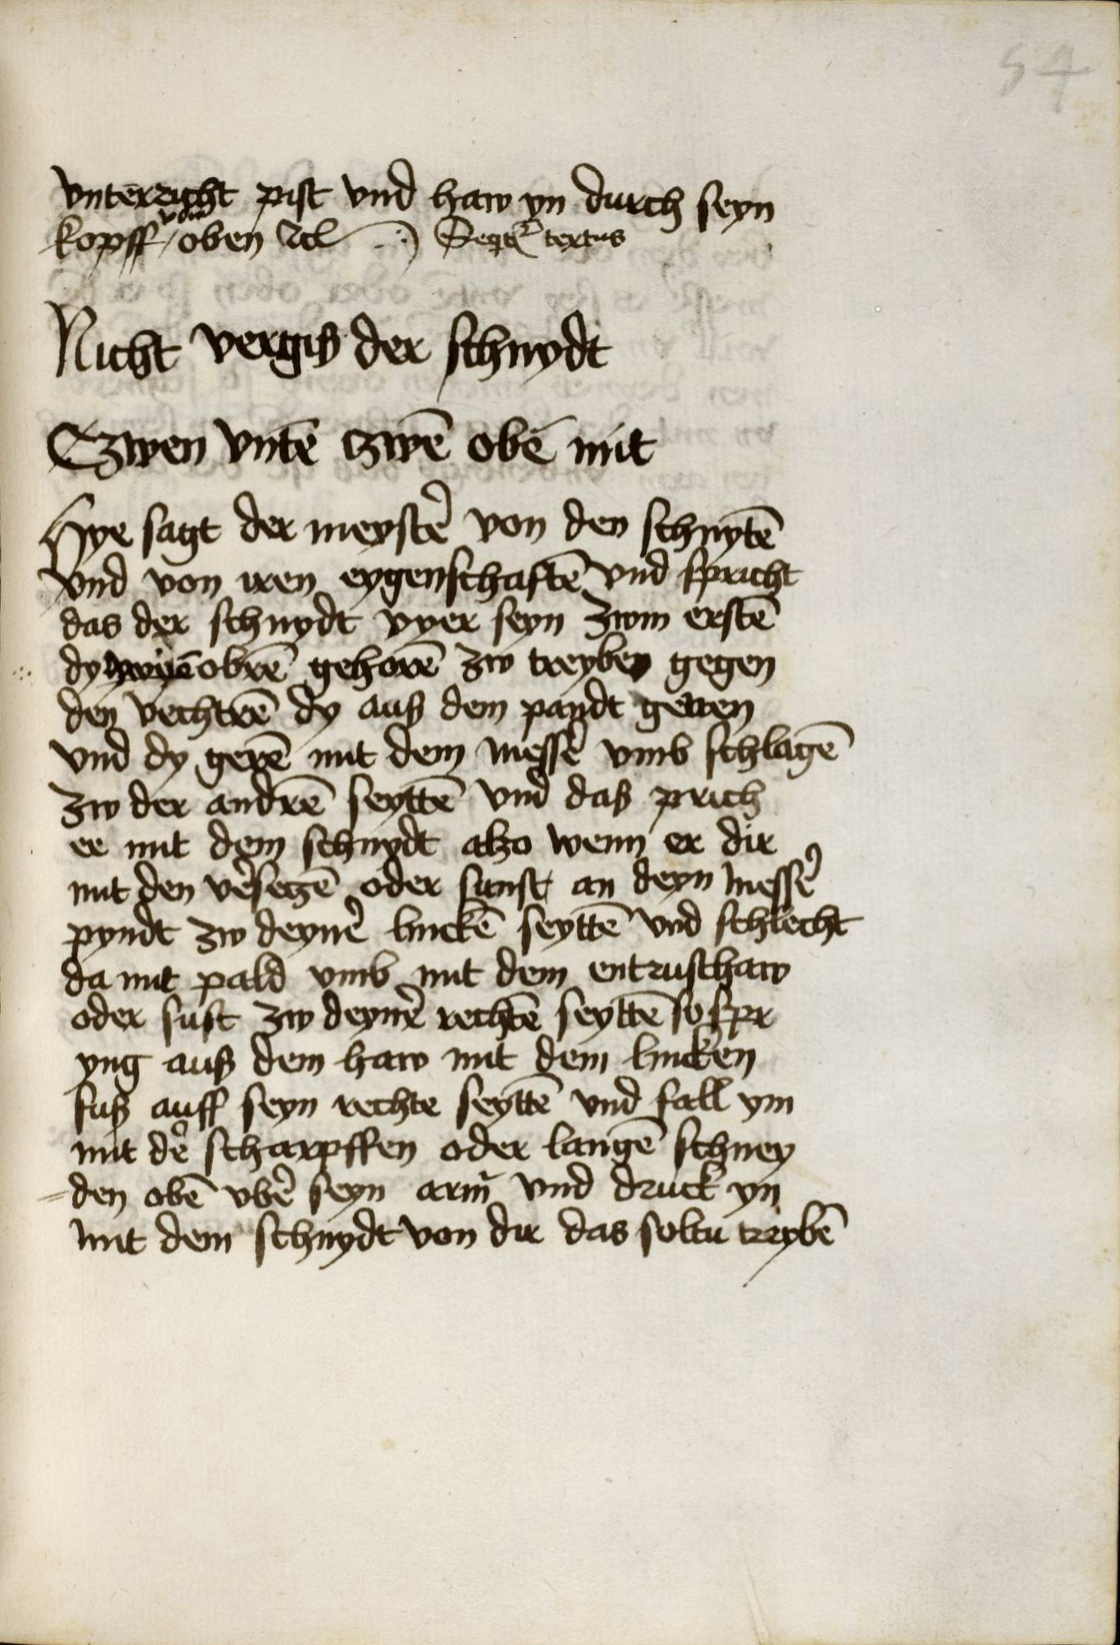 54
vnterricht pist vnd haw yn durch seyn
kopff von oben ꝛcͣ Seqt̃ textus
Nicht vergiß der schnydt
Czwen vntē czwē obē mit
Hye sagt der meystẽ von den schnytē
vnd von iren eygenschaftē vnd spricht
das der schnydt vyer seyn zwm erstē
dy obrē gehorē zw treyben gegen
den vechtrē dy auß dem pandt geen
vnd dy gerē mit dem messẽ vmb schlagē
zw der andrē seyttē vnd daß prich
er mit dem schnydt alzo wenn er dir
mit den vẽsetzē oder sunst an deyn messẽ
pyndt zw deynẽ linckē seyttē vnd schlecht
da mit pald vmb mit dem entrusthaw
oder sust zw deynẽ rechtē seyttē so spr
yng auß dem haw mit dem lincken
fuß auff seyn rechte seyttē vnd fall ym
mit dẽ scharpffen oder langē schney
den obē vbẽ seyn arm̃ vnd druck yn
mit dem schnydt von dir das soltu treybē